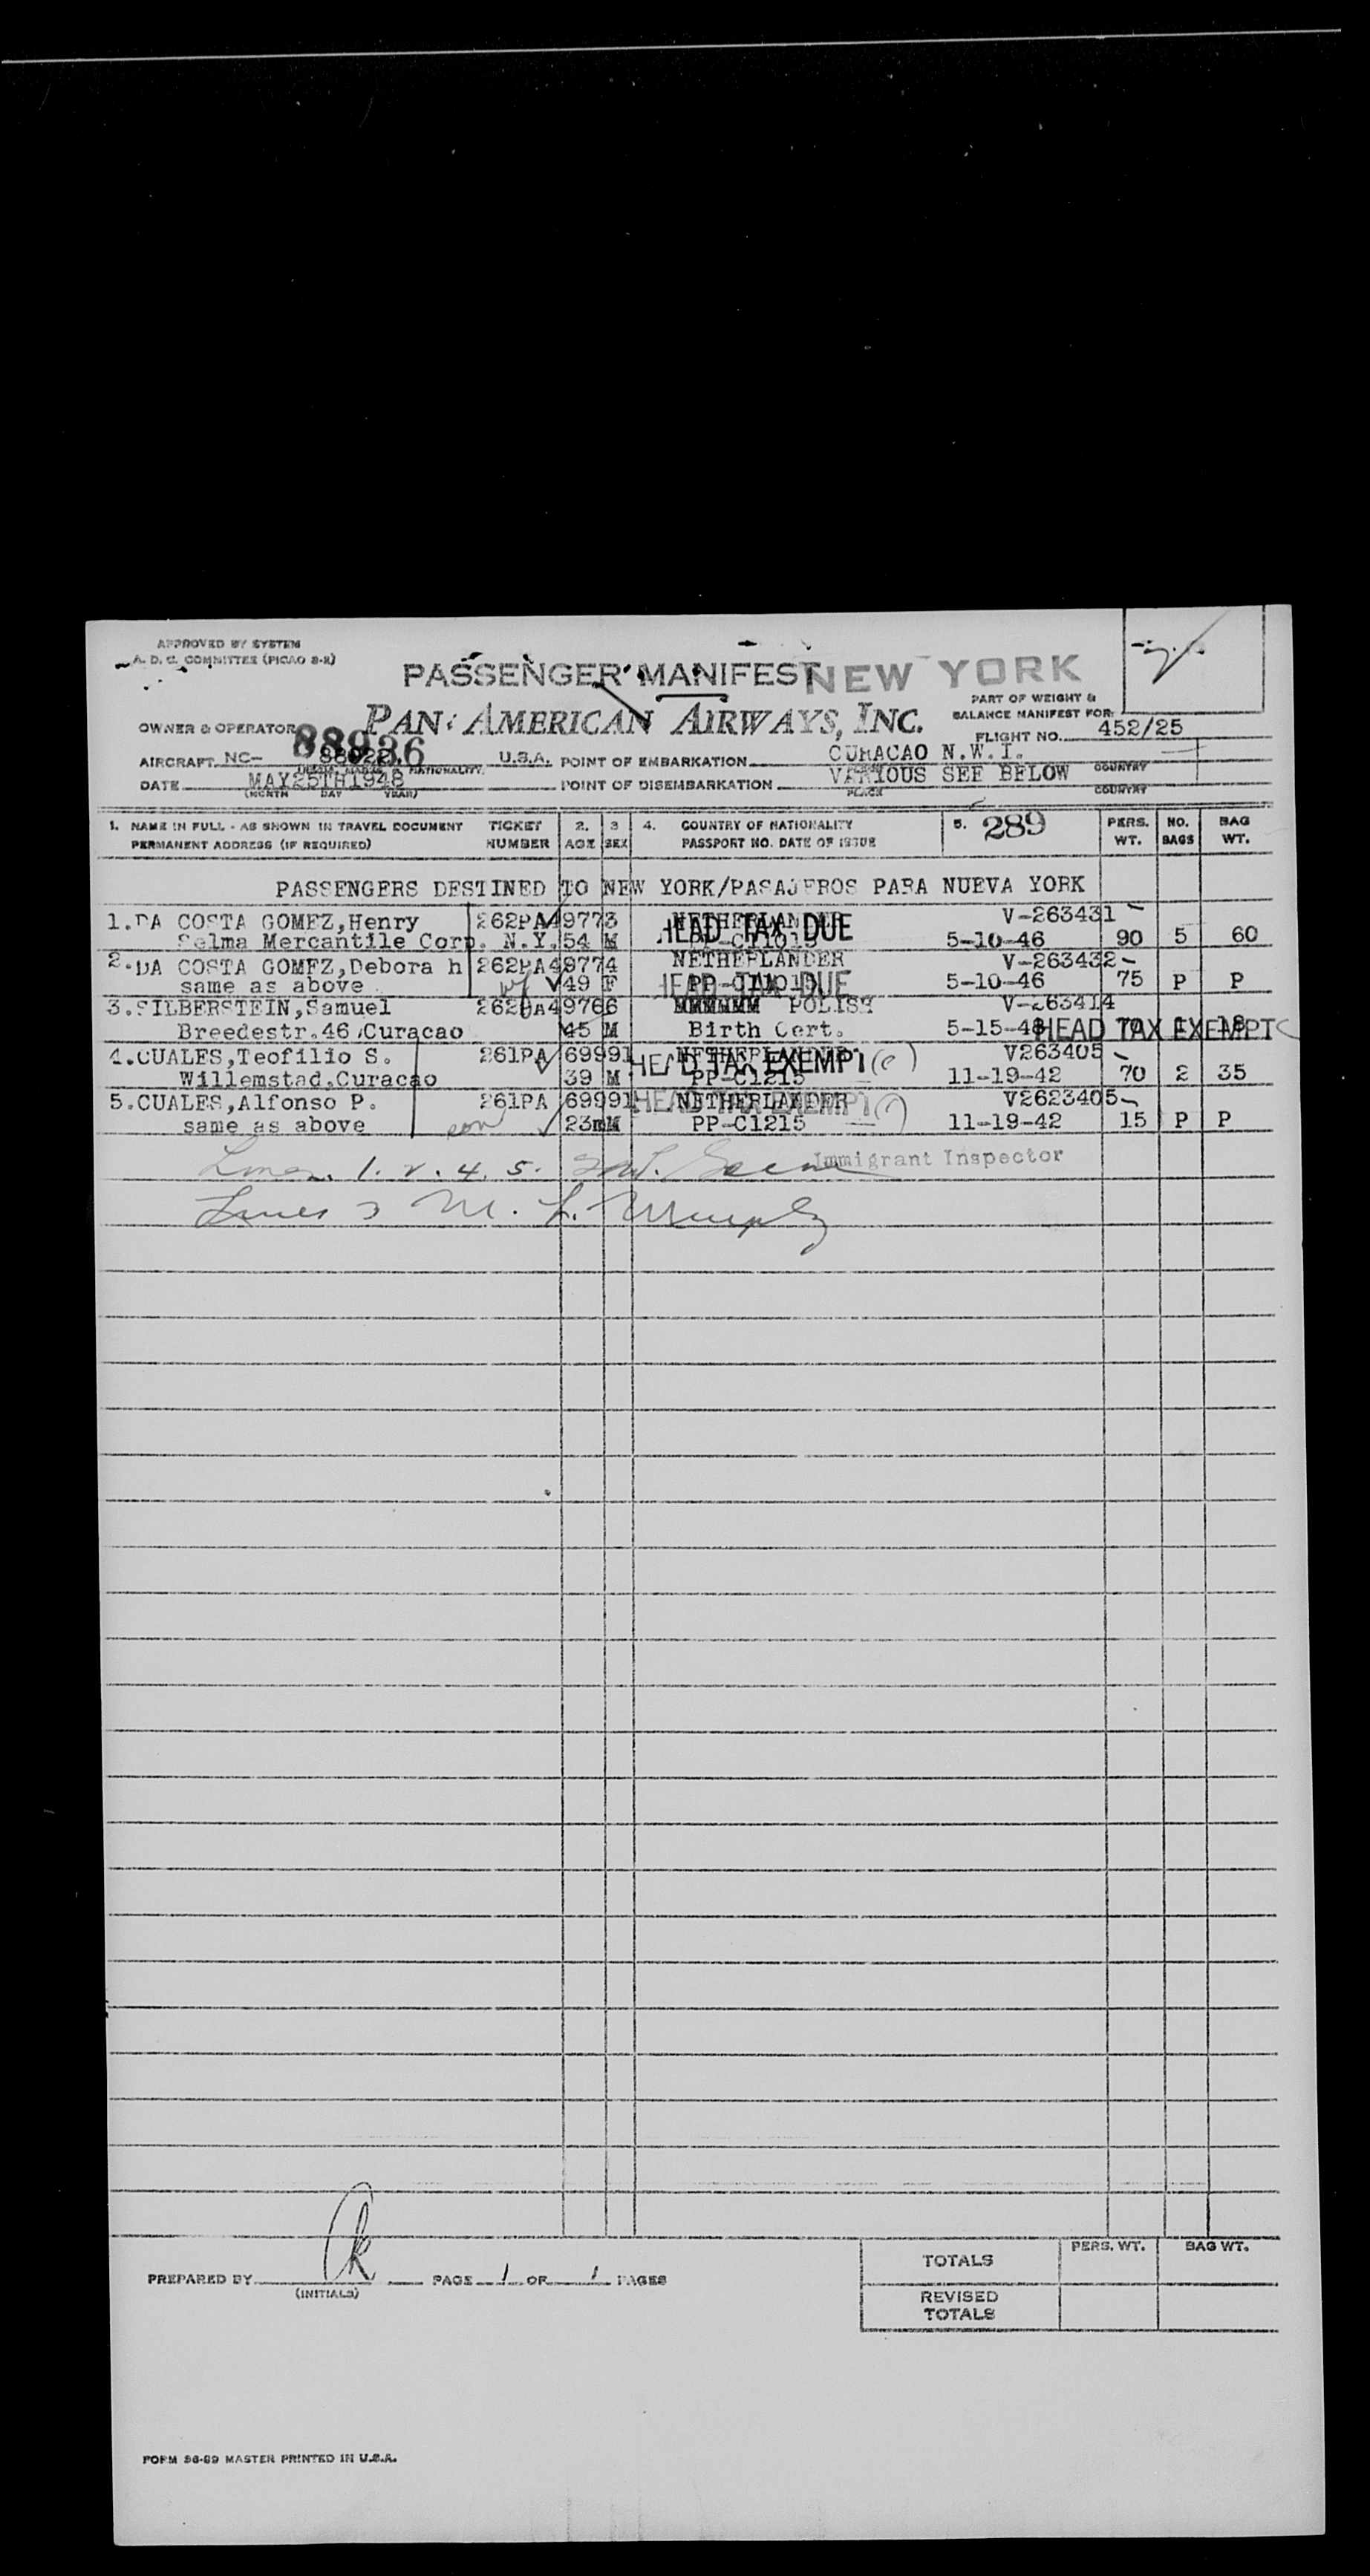 APPROVED BY SYSTEM
A. D. C. COMMITTEE (PICAO 8-2)
PASSENGER MANIFEST NEW YORK
PART OF WEIGHT &
BALANCE MANIFEST FOR
OWNER & OPERATOR PAN AMERICAN AIRWAYS, INC.
FLIGHT NO. 452/25
88936
AIRCRAFT NC- U.S.A. POINT OF EMBARKATION CURACAO N.W.I.
NATIONALITY COUNTRY
DATE MAY25TH1948 POINT OF DISEMBARKATION VARIOUS SEE BELOW
(MONTH DAY YEAR) PLACE COUNTRY
1. NAME IN FULL - AS SHOWN IN TRAVEL DOCUMENT TICKET 2. 3 4. COUNTRY OF NATIONALITY 5. 289 PERS. NO. BAG
PERMANENT ADDRESS (IF REQUIRED) NUMBER AGE SEX PASSPORT NO. DATE OF ISSUE WT. BAGS WT.
PASSENGERS DESTINED TO NEW YORK/PASAJEROS PARA NUEVA YORK
1.DA COSTA GOMEZ,Henry 262PA49773 NETHERLANDER V-263431
Selma Mercantile Corp. N.Y. 54 M HEAD TAX DUE 5-10-46 90 5 60
2.DA COSTA GOMEZ,Debora h 262PA49774 NETHERLANDER V-263432
same as above wf 49 F HEAD TAX DUE 5-10-46 75 P P
3.SILBERSTEIN,Samuel 262PA49766 POLISH V-263414
Breedestr.46,Curacao 45 M Birth Cert. 5-15-48 HEAD TAX EXEMPT
4.CUALES,Teofilio S. 261PA 69991 NETHERLANDER V263405
HEAD TAX EXEMPT
Willemstad,Curacao 39 M PP-C1215 11-19-42 70 2 35
5.CUALES,Alfonso P. 261PA 69991 NETHERLANDER V2623405
HEAD TAX EXEMPT
same as above son 23mM PP-C1215 11-19-42 15 P P
Lines 1. 2. 4. 5. Immigrant Inspector
Lines 3 M. L. Murphy
PREPARED BY PAGE 1 OF 1 PAGES
(INITIALS)
PERS. WT. BAG WT.
TOTALS
REVISED
TOTALS
FORM 36-89 MASTER PRINTED IN U.S.A.